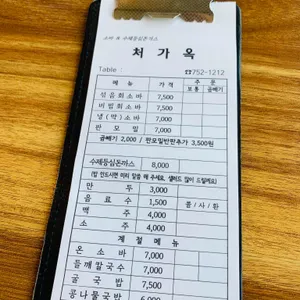 소바 & 수제등심돈까스
처 가 옥
Table : ☎752-1212
메 뉴 가 격 주 문
보 통 곱빼기
섬음회소바 7,500
비빔회소바 7,500
냉(막)소바 7,000
판 모 밀 7,000
곱빼기 2,000 / 판모밀반판추가 3,500원
수제등심돈까스 8,000
(밥 안드시면 미리 말씀 해 주세요. 샐러드 많이 드릴께요)
만 두 3,000
음 료 수 1,500 콜 / 사 / 환
맥 주 4,000
소 주 4,000
계 절 메 뉴
온 소 바 7,000
들깨칼국수 7,000
굴 국 밥 7,500
콩나물국밥 6,000